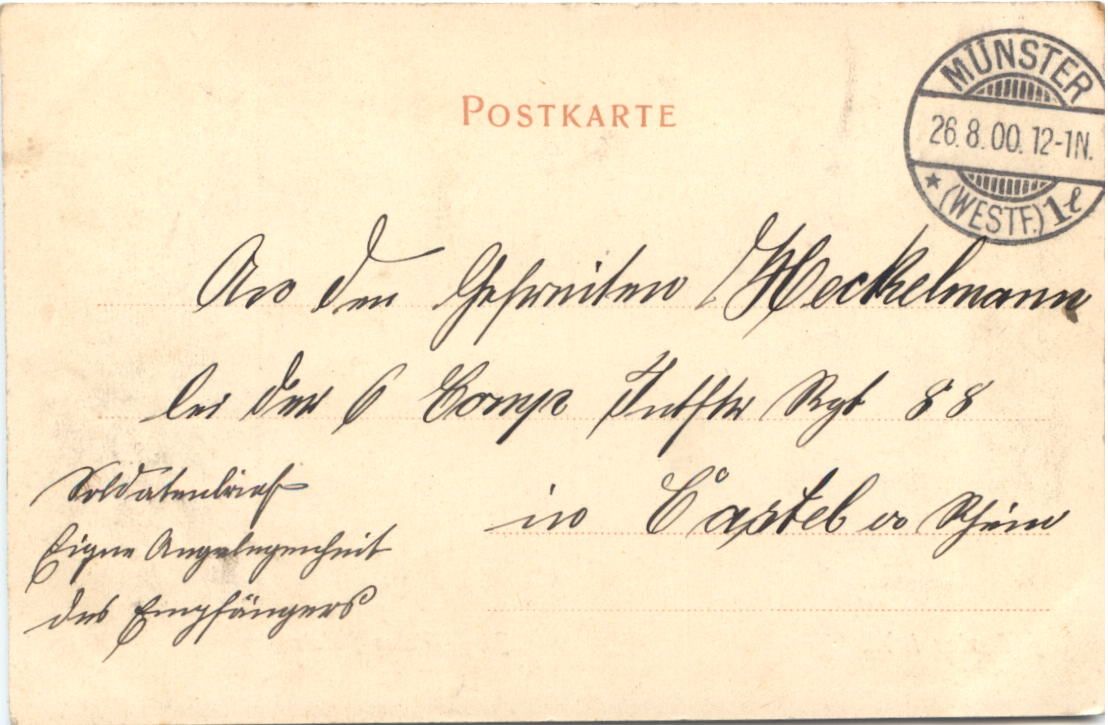 POSTKARTE
MÜNSTER
26.8.00.12-1N.
(WESTF.) 1 l
An den Gefreiten Heckelmann
bei der 6 Comp Inftr Rgt 88
in Castel a Rhein
Soldatenbrief
Eigne Angelegenheit
des Empfängers